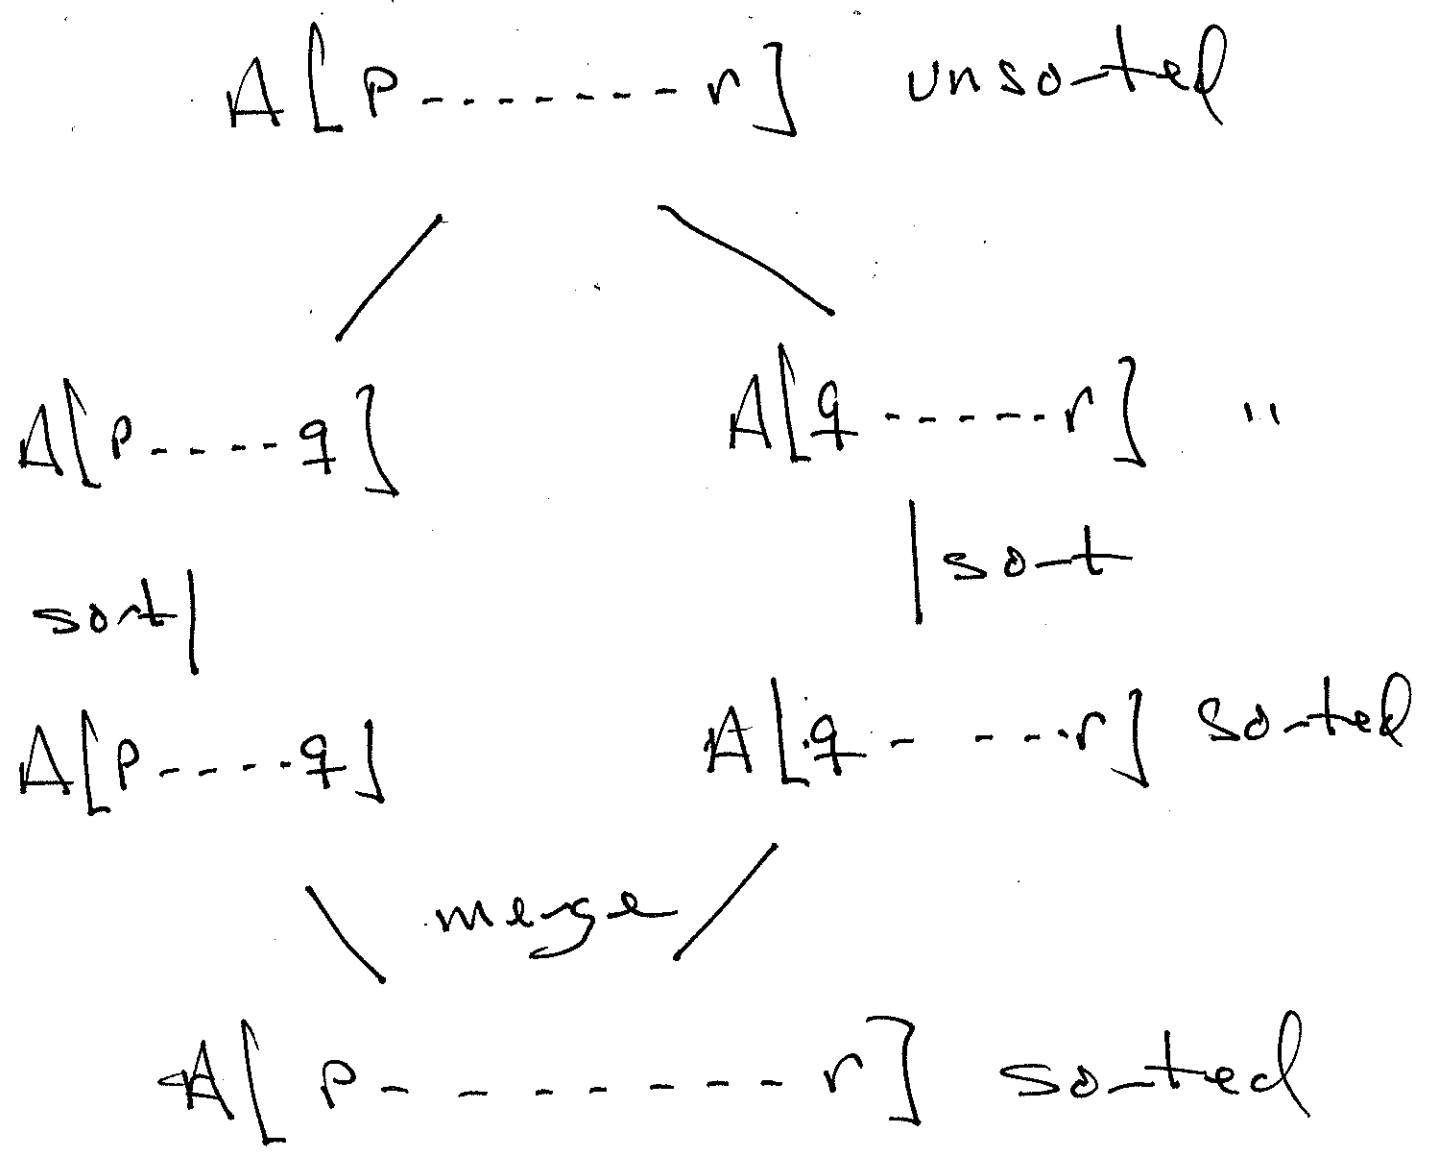 A[p--------r] unsorted
A[p----q] A[q-----r] "
sort sort
A[p----q] A[q----r] sorted
merge
A[p--------r] sorted